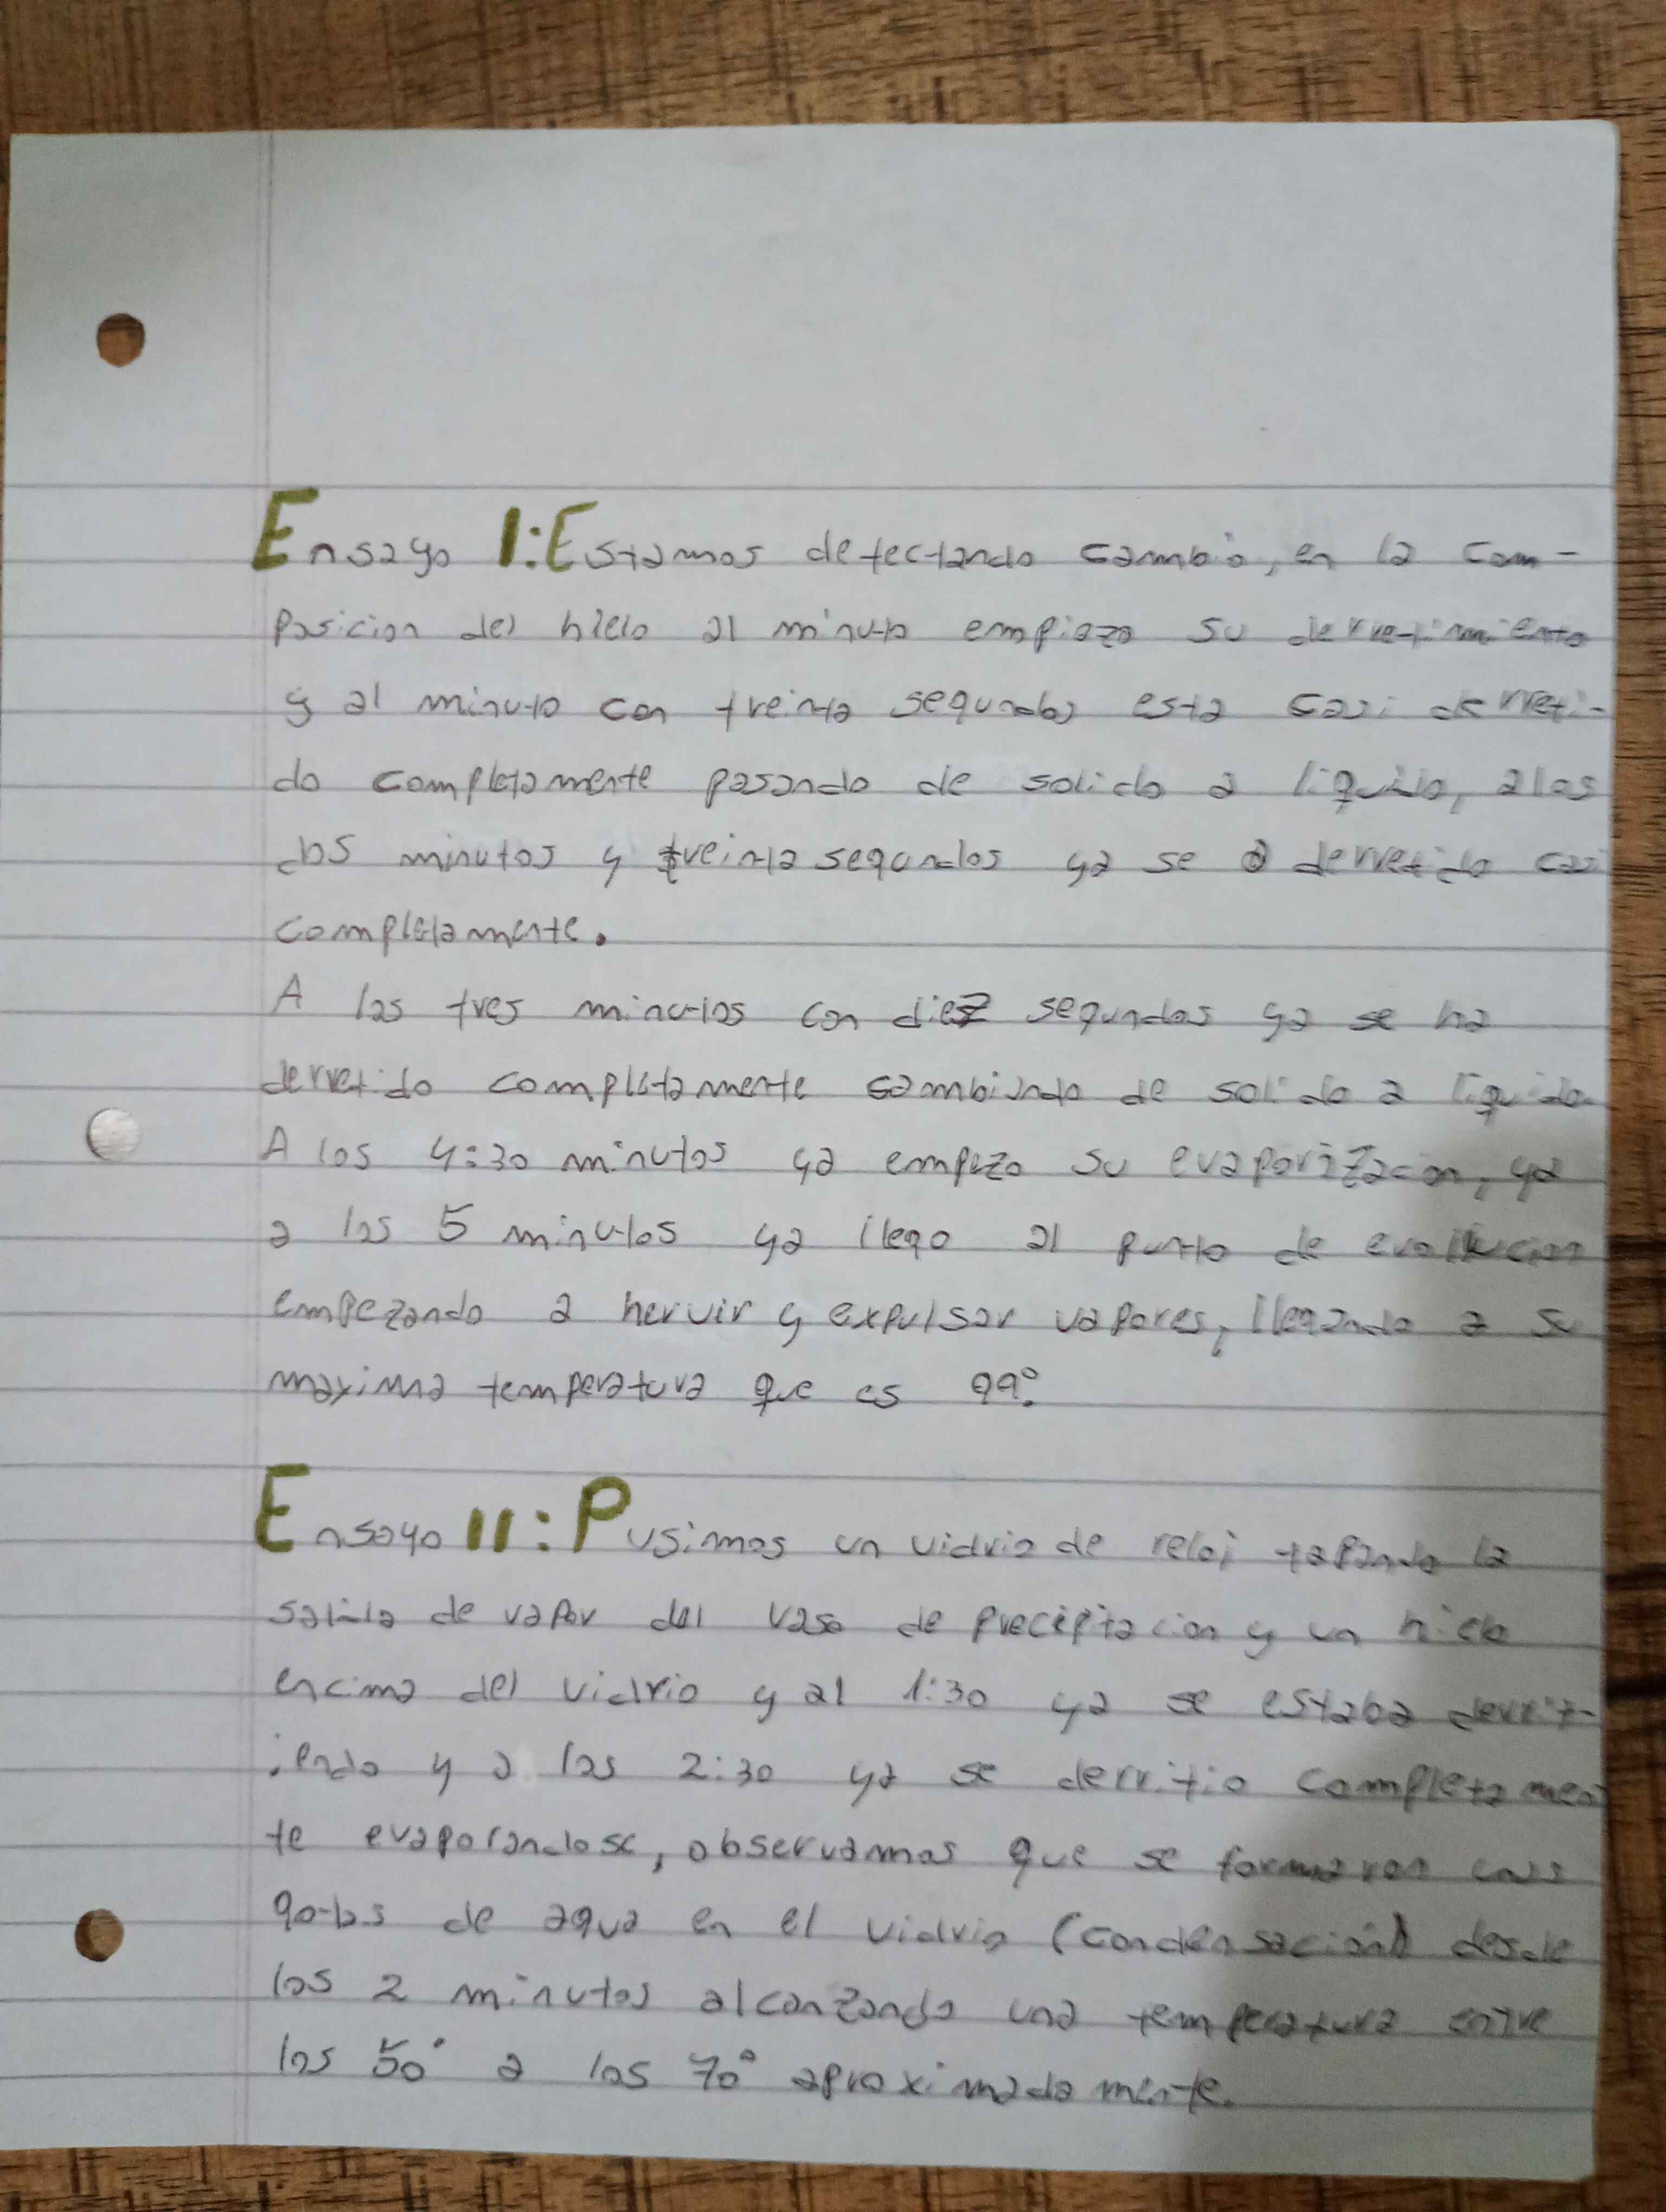 Ensayo I: Estamos detectando cambio, en la com-
posicion del hielo al minuto empieza su derretimiento
y al minuto con treinta segundos esta casi derreti-
do completamente pasando de solido a liquido, a los
dos minutos y treinta segundos ya se a derretido casi
completamente.
A los tres minutos con diez segundos ya se ha
derretido completamente cambiando de solido a liquido
A los 4:30 minutos ya empezo su evaporización, ya
a los 5 minutos ya llego al punto de evollucion
empezando a hervir y expulsar vapores, llegando a su
maxima temperatura que es 99°.
Ensayo II: Pusimos un vidrio de reloj tapando la
salida de vapor del vaso de precipitacion y un hielo
encima del vidrio y al 1:30 ya se estaba derrit-
iendo y a los 2:30 ya se derritio completamen
te evaporandose, observamos que se formaron unas
gotas de agua en el vidrio (condensación) desde
los 2 minutos alcanzando una temperatura entre
los 50° a los 70° aproximadamente.